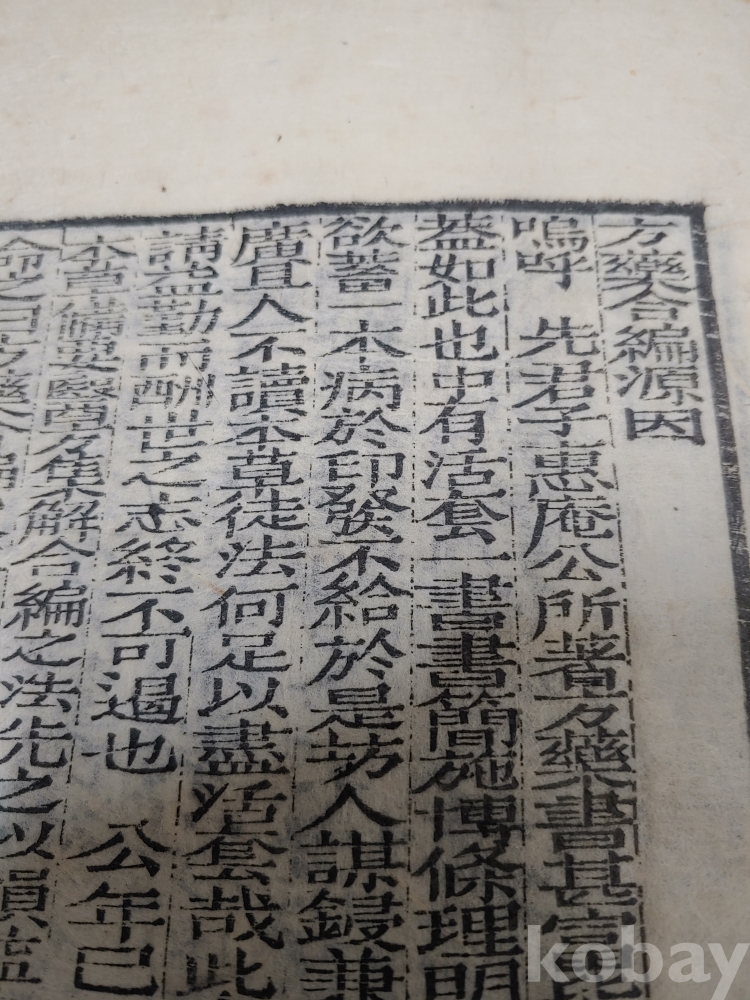 方藥合編源因
嗚呼 先君子惠庵公所著方藥書甚富
蓋如此也中有活套一書書簡施博條理明
欲蓄一本病於印發不給於是坊人謀鋟兼
廣且人不讀本草徒法何足以盡活套哉此
請益勤而酬世之志終不可遏也 公年已
本草備要醫方集解合編之法先之以損益
命之曰方藥合編
kobay